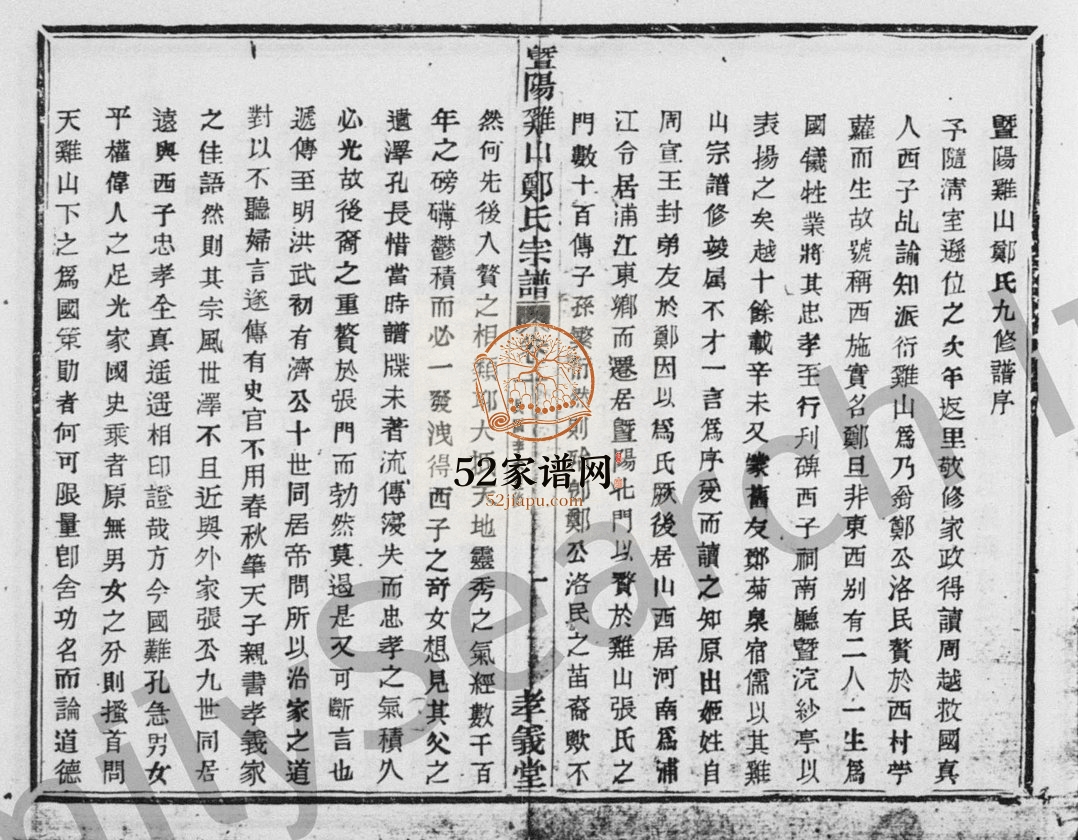 暨陽雞山鄭氏九修譜序
予隨淸室遜位之次年返里敬修家政得讀周越救國真
人西子乩諭知派衍雞山爲乃翁鄭公洛民贅於西村苧
蘿而生故號稱西施實名鄭旦非東西别有二人一生爲
國犧牲業將其忠孝至行刋碑西子祠南廳暨浣紗亭以
表揚之矣越十餘載辛未又蒙舊友鄭菊泉宿儒以其雞
山宗譜修竣属不才一言爲序爰而讀之知原出姬姓自
周宣王封弟友於鄭因以爲氏厥後居山西居河南爲浦
江令居浦江東鄉而遷居暨陽北門以贅於雞山張氏之
門數十百傳子孫繁衍然則鄭公洛民之苗裔歟不
暨陽雞山鄭氏宗譜 卷 孝義堂
然何先後入贅之相類耶大抵天地靈秀之氣經數千百
年之磅礴鬱積而必一發洩得西子之奇女想見其父之
遺澤孔長惜當時譜牒未著流傳寖失而忠孝之氣積久
必光故後裔之重贅於張門而勃然莫遏是又可斷言也
遞傳至明洪武初有濟公十世同居帝問所以治家之道
對以不聽婦言遂傳有史官不用春秋筆天子親書孝義家
之佳語然則其宗風世澤不且近與外家張公九世同居
遠與西子忠孝全真遥遥相印證哉方今國難孔急男女
平權偉人之足光家國史乘者原無男女之分則搔首問
天雞山下之爲國策勛者何可限量卽舍功名而論道德
52家谱网
52jiapu.com